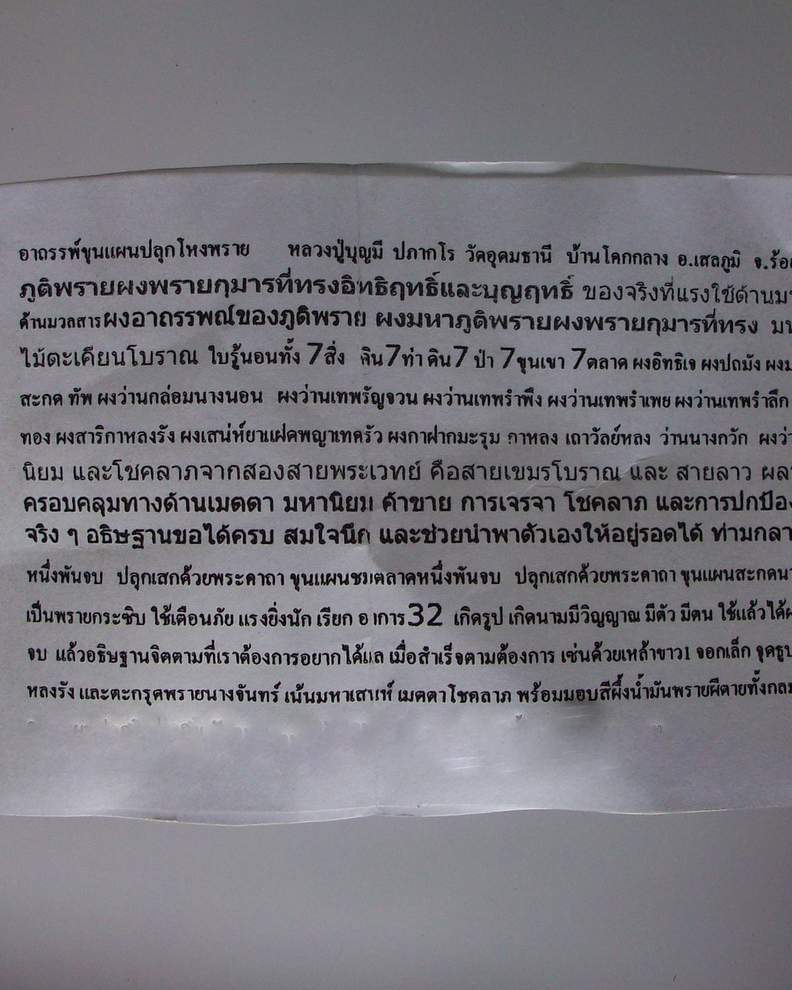 อาถรรพ์ขุนแผนปลุกโหงพราย หลวงปู่บุญมี ปภากโร วัดอุดมธานี บ้านโคกกลาง อ.เสลภูมิ จ.ร้อย
ภูติพรายผงพรายกุมารที่ทรงอิทธิฤทธิ์และบุญฤทธิ์ ของจริงที่แรงใช้ด้านมห
ด้านมวลสารผงอาถรรพณ์ของภูติพราย ผงมหาภูติพรายผงพรายกุมารที่ทรง มห
ไม้ตะเคียนโบราณ ใบรู้นอนทั้ง 7สิ่ง ดิน7ท่า ดิน7 ป่า 7ขุนเขา 7ตลาด ผงอิทธิเจ ผงปถมัง ผงม
สะกด ทัพ ผงว่านกล่อมนางนอน ผงว่านเทพรัญจวน ผงว่านเทพรำพึง ผงว่านเทพรำเพย ผงว่านเทพรำลึก
ทอง ผงสาริกาหลงรัง ผงเสน่ห์ยาแฝดพญาเทครัว ผงกาฝากมะรุม กาหลง เถาวัลย์หลง ว่านนางกวัก ผงว่า
นิยม และโชคลาภจากสองสายพระเวทย์ คือสายเขมรโบราณ และ สายลาว ผลา
ครอบคลุมทางด้านเมตตา มหานิยม ค้าขาย การเจรจา โชคลาภ และการปกป้อง
จริง ๆ อธิษฐานขอได้ครบ สมใจนึก และช่วยนำพาตัวเองให้อยู่รอดได้ ท่ามกลา
หนึ่งพันจบ ปลุกเสกด้วยพระคาถา ขุนแผนชมตลาดหนึ่งพันจบ ปลุกเสกด้วยพระคาถา ขุนแผนสะกดนา
เป็นพรายกระซิบ ใช้เตือนภัย แรงยิ่งนัก เรียก อาการ32 เกิดรูป เกิดนามมีวิญญาณ มีตัว มีตน ใช้แล้วได้ผ
จบ แล้วอธิษฐานจิตตามที่เราต้องการอยากได้ผล เมื่อสำเร็จตามต้องการ เซ่นด้วยเหล้าขาว1 จอกเล็ก จุดธูป
หลงรัง และตะกรุดพรายนางจันทร์ เน้นมหาเสน่ห์ เมตตาโชคลาภ พร้อมมอบสีผึ้งน้ำมันพรายผีตายทั้งกลม